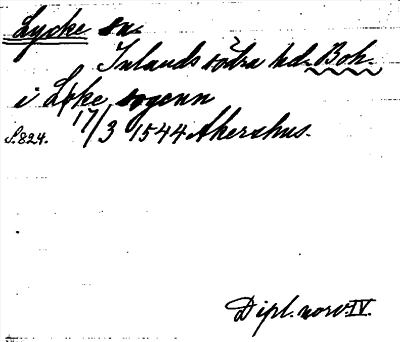 Lycke sn.
Inlands södra hd. Boh.
i Løke sogenn
17/3 1544 Akershus.
S. 824.
Dipl. norv. IV.